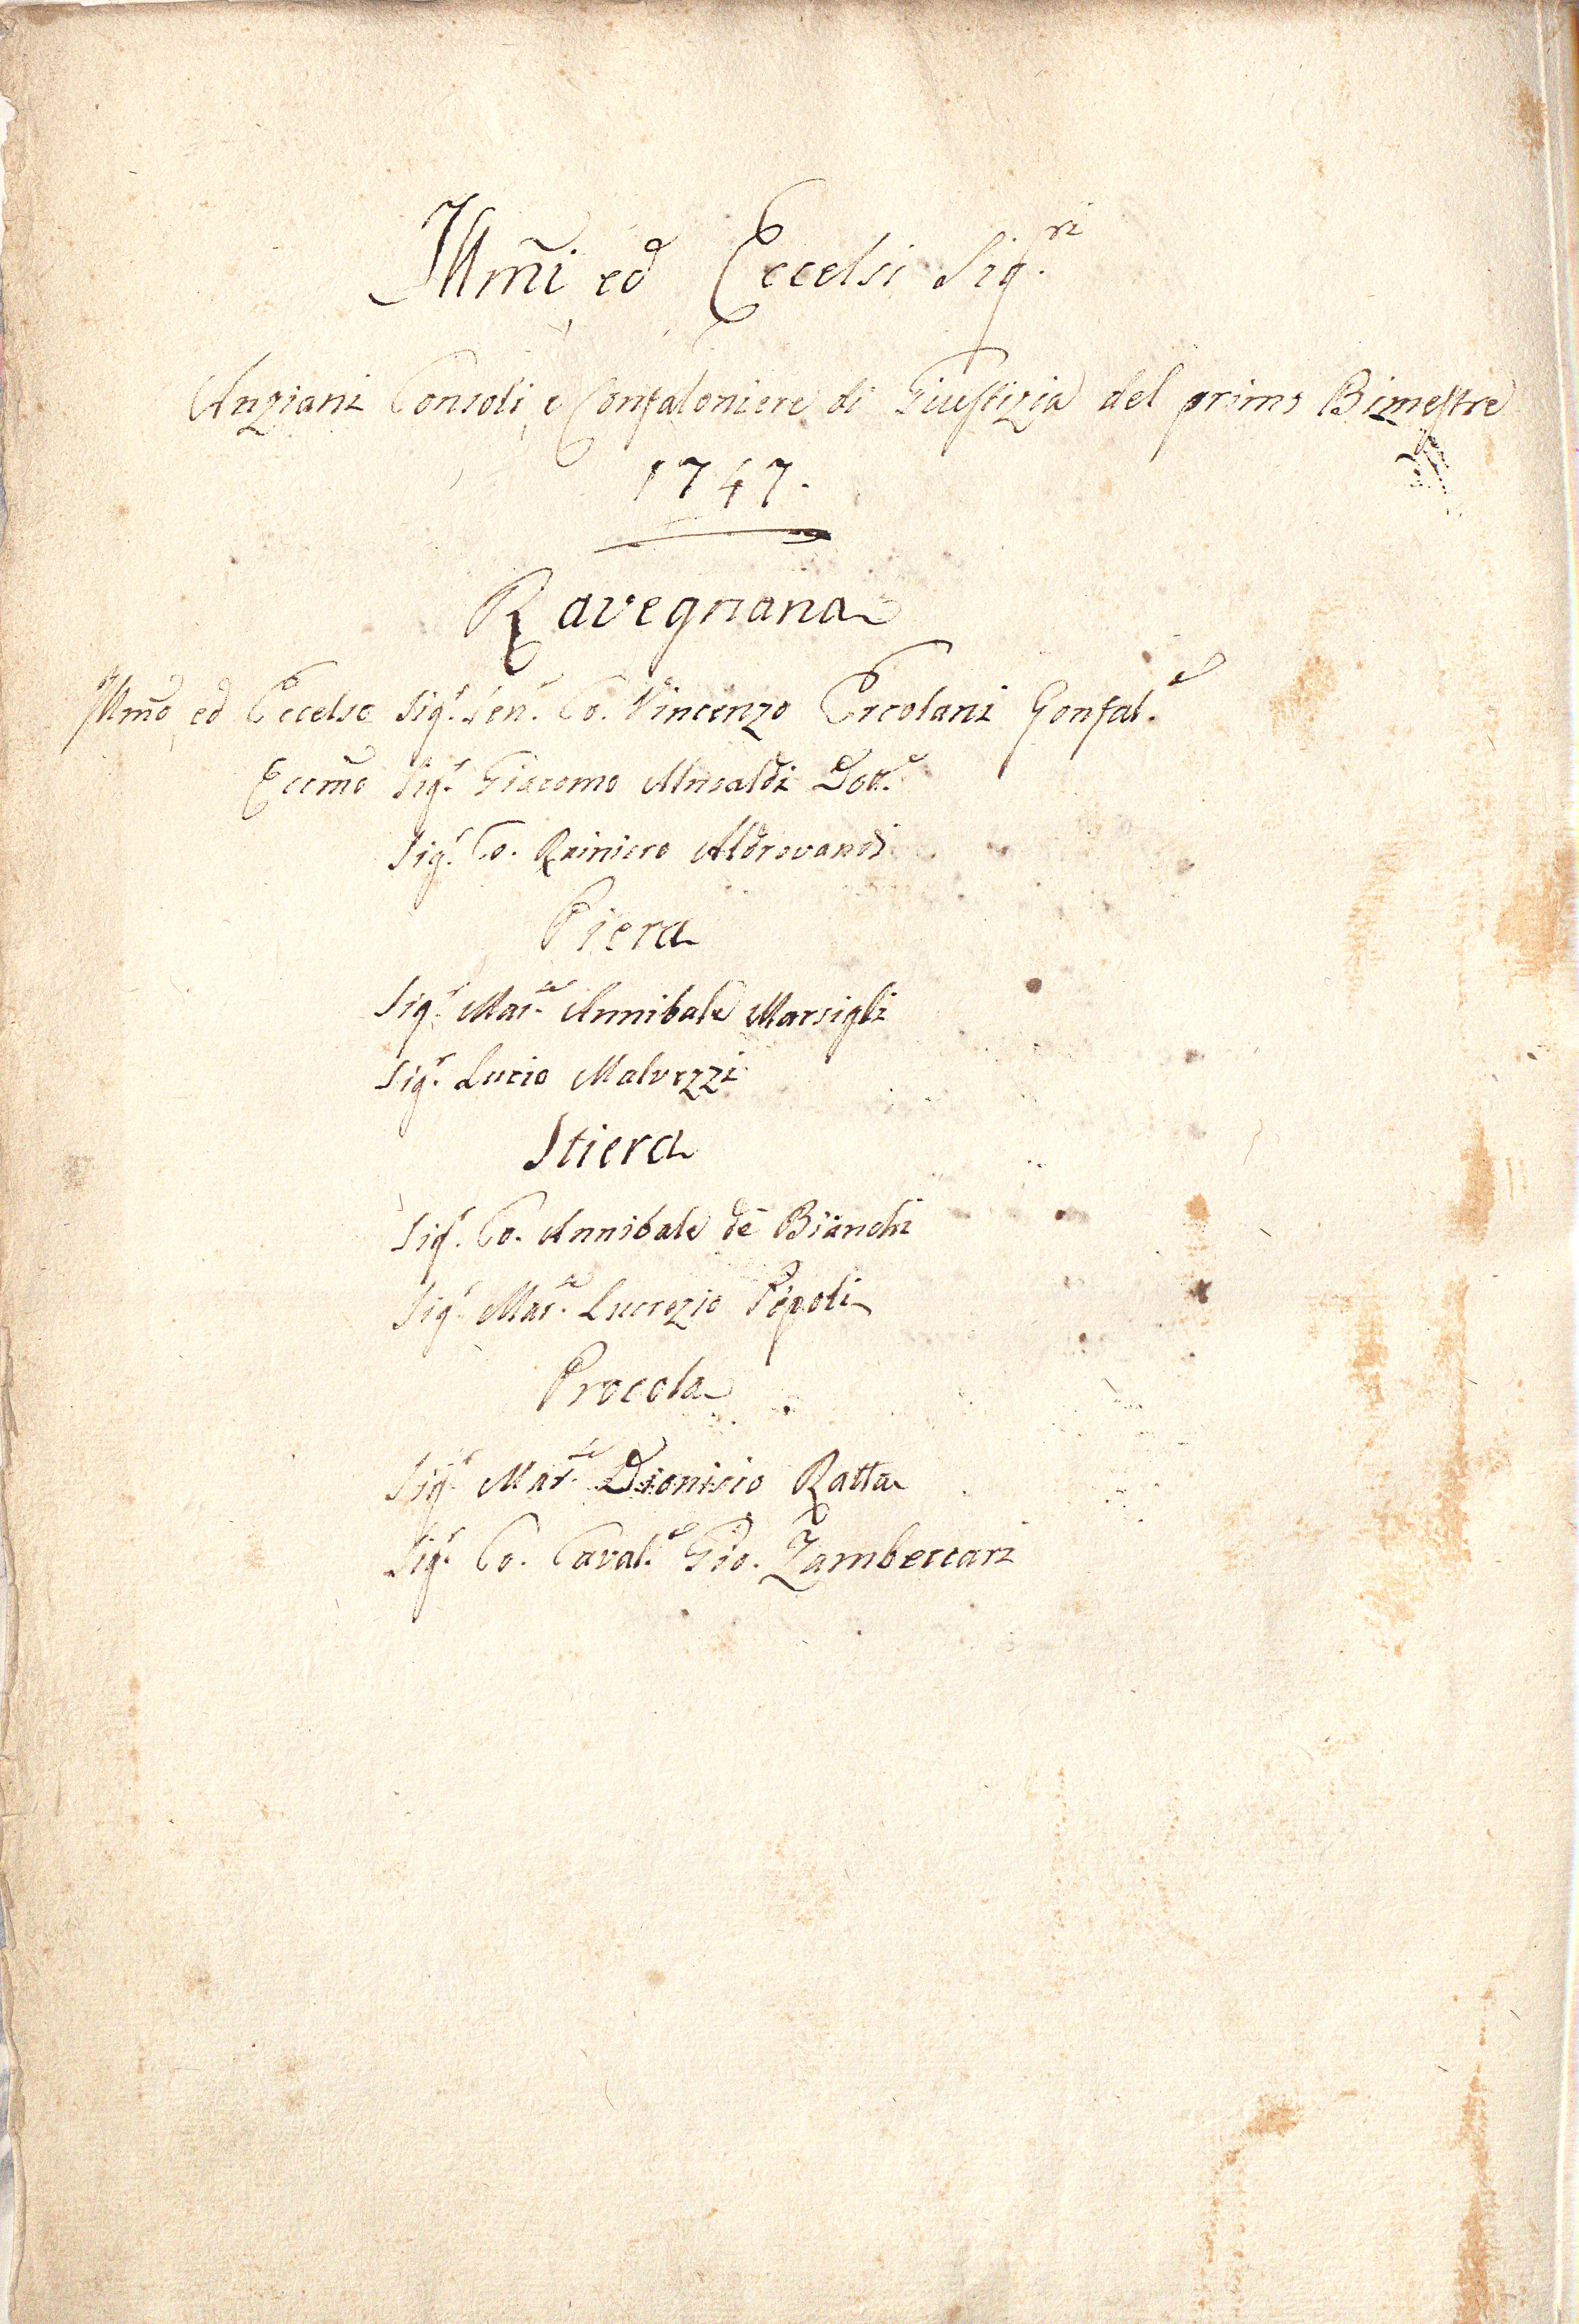 Illm̃i ed Eccelsi Sig.ri
Anziani Consoli, e Confaloniere di Giustizia del primo Bimestre
1747.
Ravegnana
Illm̃o ed Eccelso Sig.r Sen.r Co. Vincenzo Ercolani Gonfal.e
Eccm̃o Sig.r Giacomo Ansaldi Dott.e
Sig.r Co. Rainiero Aldrovandi
Piera
Sig.r Mar.se Annibale Marsigli
Sig.r Lucio Malvezzi
Stiera
Sig.r Co. Annibale de Bianchi
Sig.r Mar.se Lucrezio Pepoli
Procola
Sig.r Mar.se Dionisio Ratta
Sig.r Co. Caval.e Gio. Zambeccari